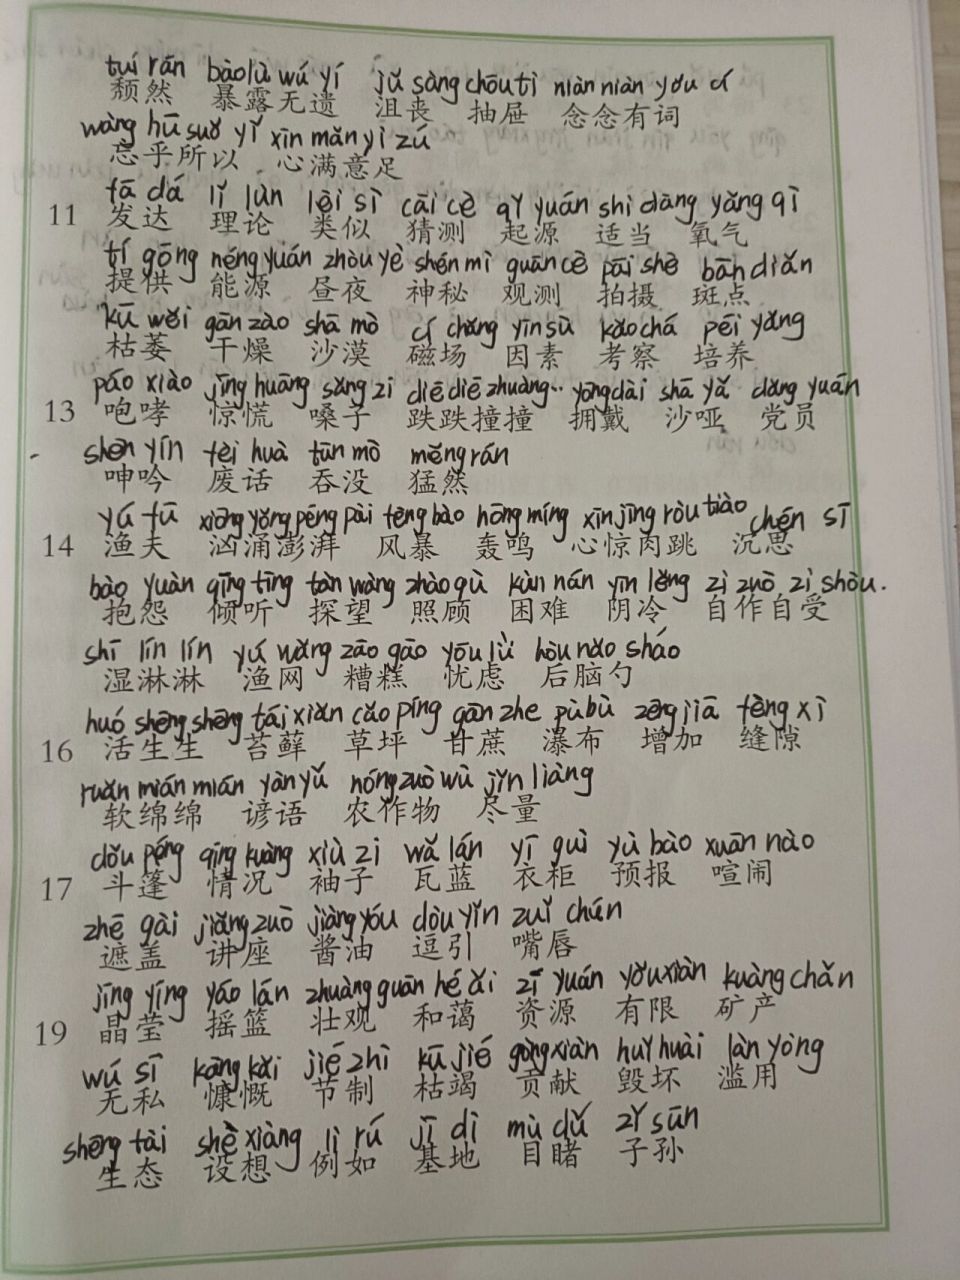 tuí rán bào lù wú yí jǔ sàng chōu tì niàn niàn yǒu cí
颓然 暴露无遗 沮丧 抽屉 念念有词
wàng hū suǒ yǐ xīn mǎn yì zú
忘乎所以 心满意足
fā dá lǐ lùn lèi sì cāi cè qǐ yuán shì dàng yǎng qì
11 发达 理论 类似 猜测 起源 适当 氧气
tí gōng néng yuán zhòu yè shén mì guān cè pāi shè bān diǎn
提供 能源 昼夜 神秘 观测 拍摄 斑点
kū wěi gān zào shā mò cí chǎng yīn sù kǎo chá péi yǎng
枯萎 干燥 沙漠 磁场 因素 考察 培养
páo xiào jīng huāng sǎng zi diē diē zhuàng.. yōng dài shā yǎ dǎng yuán
13 咆哮 惊慌 嗓子 跌跌撞撞 拥戴 沙哑 党员
shēn yín fèi huà tūn mò měng rán
呻吟 废话 吞没 猛然
yú fū xiōng yǒng péng pài fēng bào hōng míng xīn jīng ròu tiào chén sī
14 渔夫 汹涌澎湃 风暴 轰鸣 心惊肉跳 沉思
bào yuàn qīng tīng tàn wàng zhào gù kùn nán yīn lěng zì zuò zì shòu.
抱怨 倾听 探望 照顾 困难 阴冷 自作自受
shī lín lín yú wǎng zāo gāo yōu lǜ hòu nǎo sháo
湿淋淋 渔网 糟糕 忧虑 后脑勺
huó shēng shēng tái xiǎn cǎo píng gān zhe pù bù zēng jiā fèng xì
16 活生生 苔藓 草坪 甘蔗 瀑布 增加 缝隙
ruǎn mián mián yàn yǔ nóng zuò wù jǐn liàng
软绵绵 谚语 农作物 尽量
dǒu péng qíng kuàng xiù zi wǎ lán yī guì yù bào xuān nào
17 斗篷 情况 袖子 瓦蓝 衣柜 预报 喧闹
zhē gài jiǎng zuò jiàng yóu dòu yǐn zuǐ chún
遮盖 讲座 酱油 逗引 嘴唇
jīng yíng yáo lán zhuàng guān hé ǎi zī yuán yǒu xiàn kuàng chǎn
19 晶莹 摇篮 壮观 和蔼 资源 有限 矿产
wú sī kāng kǎi jié zhì kū jié gòng xiàn huǐ huài làn yòng
无私 慷慨 节制 枯竭 贡献 毁坏 滥用
shēng tài shè xiǎng lì rú jī dì mù dǔ zǐ sūn
生态 设想 例如 基地 目睹 子孙